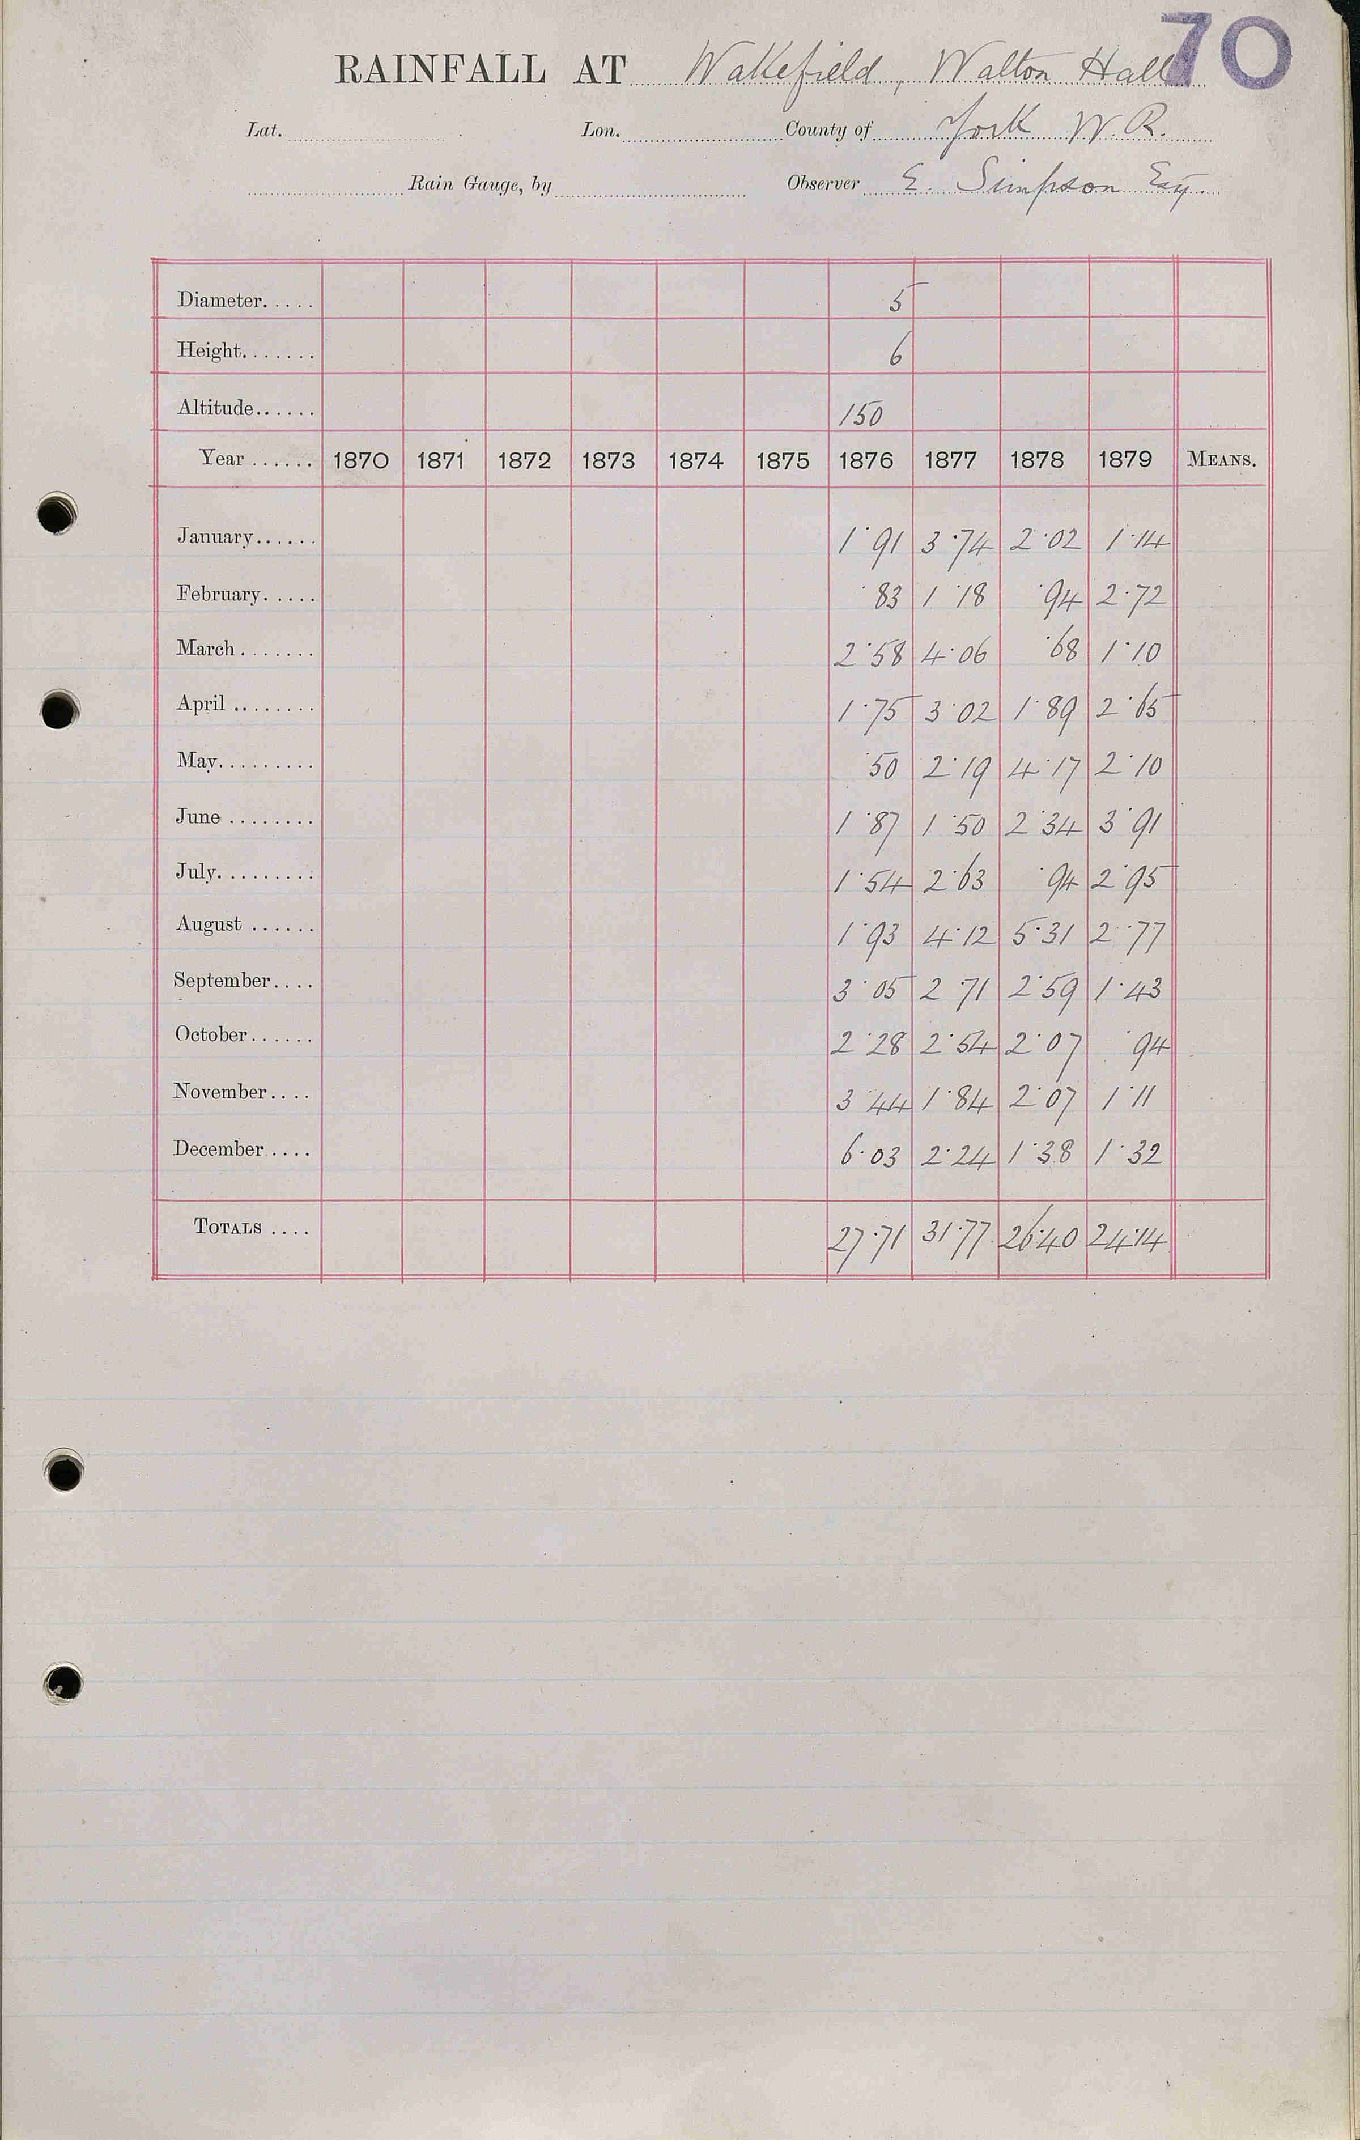 70
RAINFALL AT Wakefield, Walton Hall
Lat. Lon. County of York W.R.
Rain Gauge, by Observer E. Simpson Esq.
Diameter..... 5
Height....... 6
Altitude...... 150
Year ...... 1870 1871 1872 1873 1874 1875 1876 1877 1878 1879 MEANS.
January...... 1·91 3·74 2·02 1·14
February..... ·83 1·18 ·94 2·72
March....... 2·58 4·06 ·68 1·10
April ........ 1·75 3·02 1·89 2·65
May......... ·50 2·19 4·17 2·10
June ........ 1·87 1·50 2·34 3·91
July......... 1·54 2·63 ·94 2·95
August ...... 1·93 4·12 5·31 2·77
September.... 3·05 2·71 2·59 1·43
October...... 2·28 2·54 2·07 ·94
November.... 3·44 1·84 2·07 1·11
December.... 6·03 2·24 1·38 1·32
TOTALS .... 27·71 31·77 26·40 24·14